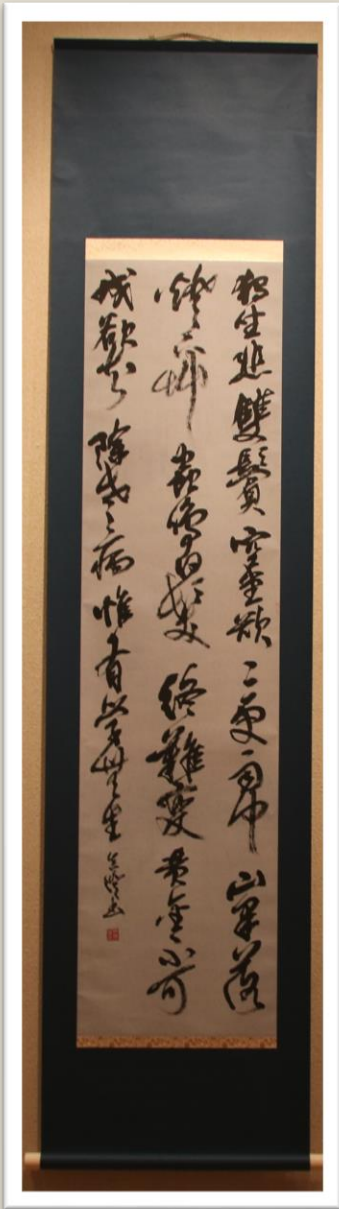 獨坐悲雙鬢空堂欲二更雨中山果落
燈下艸蟲鳴白髮終難變黄金不可
成欲知除老病惟有學無生